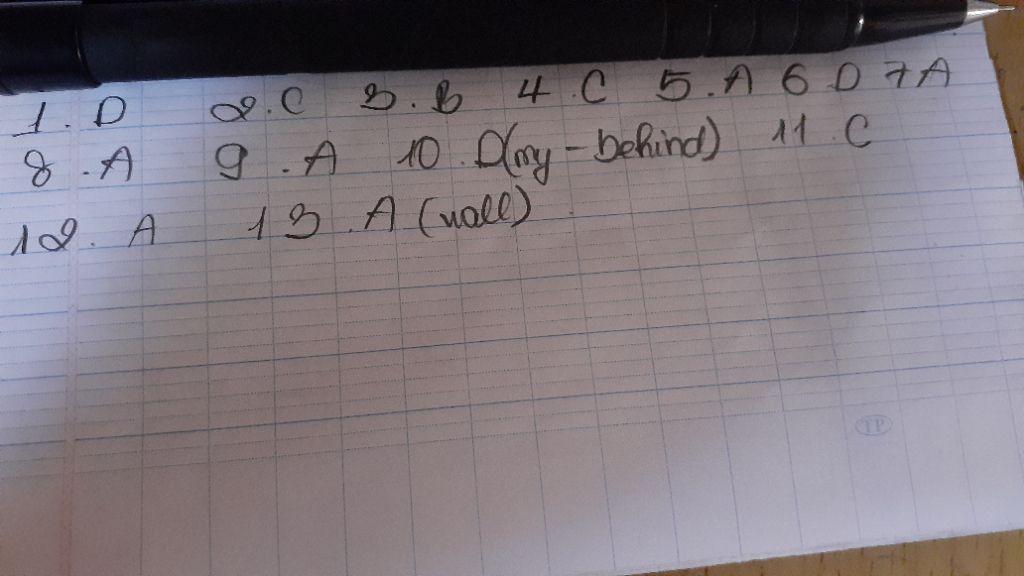 1. D 2. C 3. B 4. C 5. A 6 D 7 A
8. A 9. A 10. D(my - behind) 11 C
12. A 13. A (wall)
TP